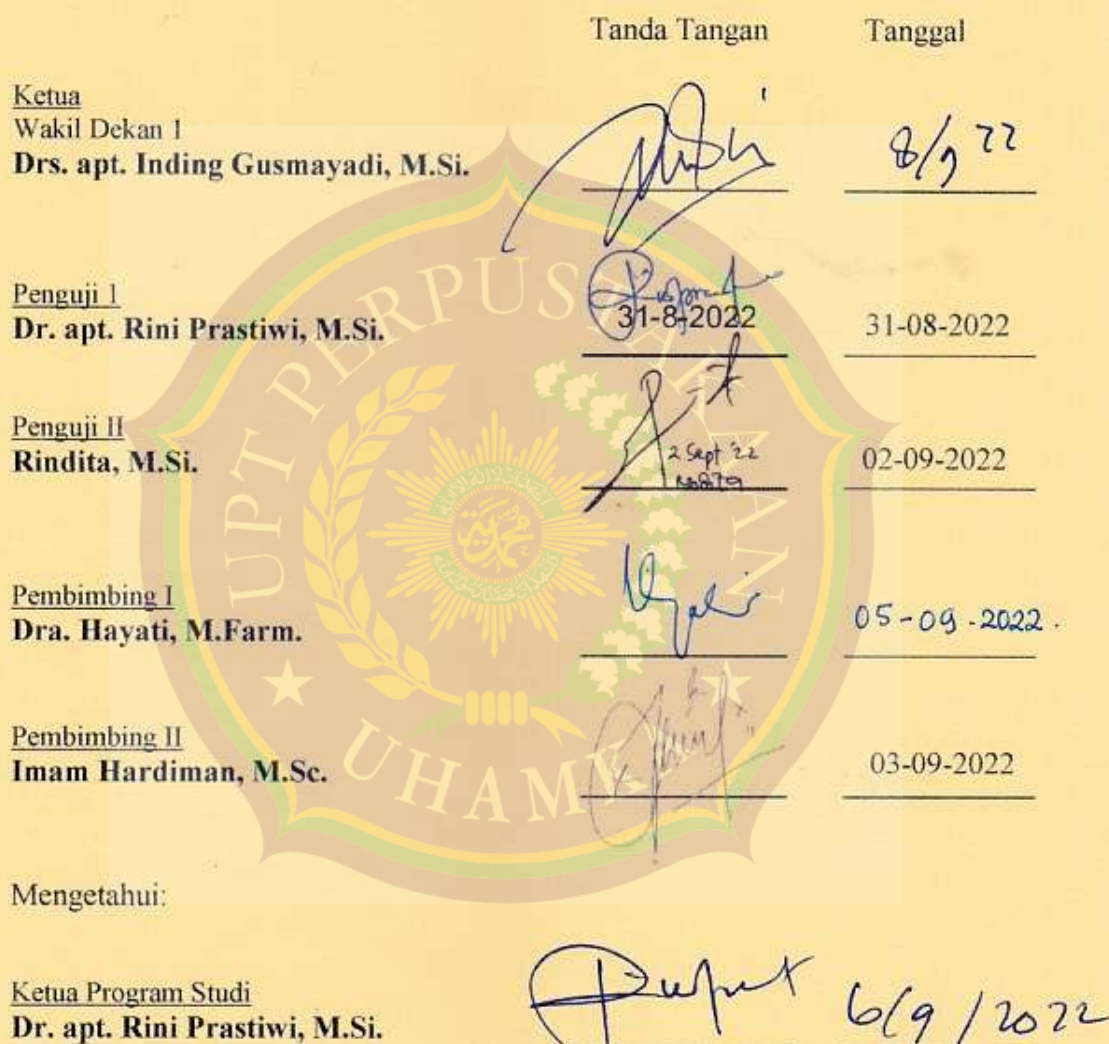 Tanda Tangan Tanggal
Ketua
Wakil Dekan 1
Drs. apt. Inding Gusmayadi, M.Si.
8/9 22
Penguji 1
Dr. apt. Rini Prastiwi, M.Si.
31-8-2022
31-08-2022
Penguji II
Rindita, M.Si.
2 Sept '22
02-09-2022
Pembimbing I
Dra. Hayati, M.Farm.
05-09-2022.
Pembimbing II
Imam Hardiman, M.Sc.
03-09-2022
Mengetahui:
Ketua Program Studi
Dr. apt. Rini Prastiwi, M.Si.
6/9/2022
UPT PERPUSTAKAAN
UHAMKA